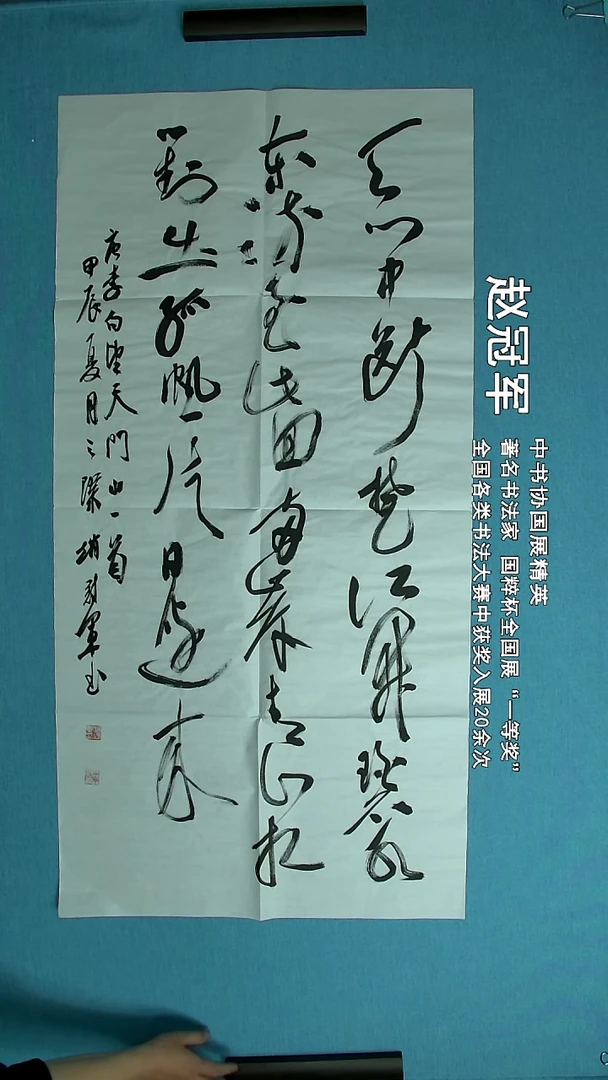 赵冠军
中书协国展精英
著名书法家 国粹杯全国展“一等奖”
全国各类书法大赛中获奖入展20余次
天門中斷楚江開碧水
東流至此回兩岸青山相
對出孤帆一片日邊來
唐李白望天門山一首
甲辰夏月之 趙冠軍书